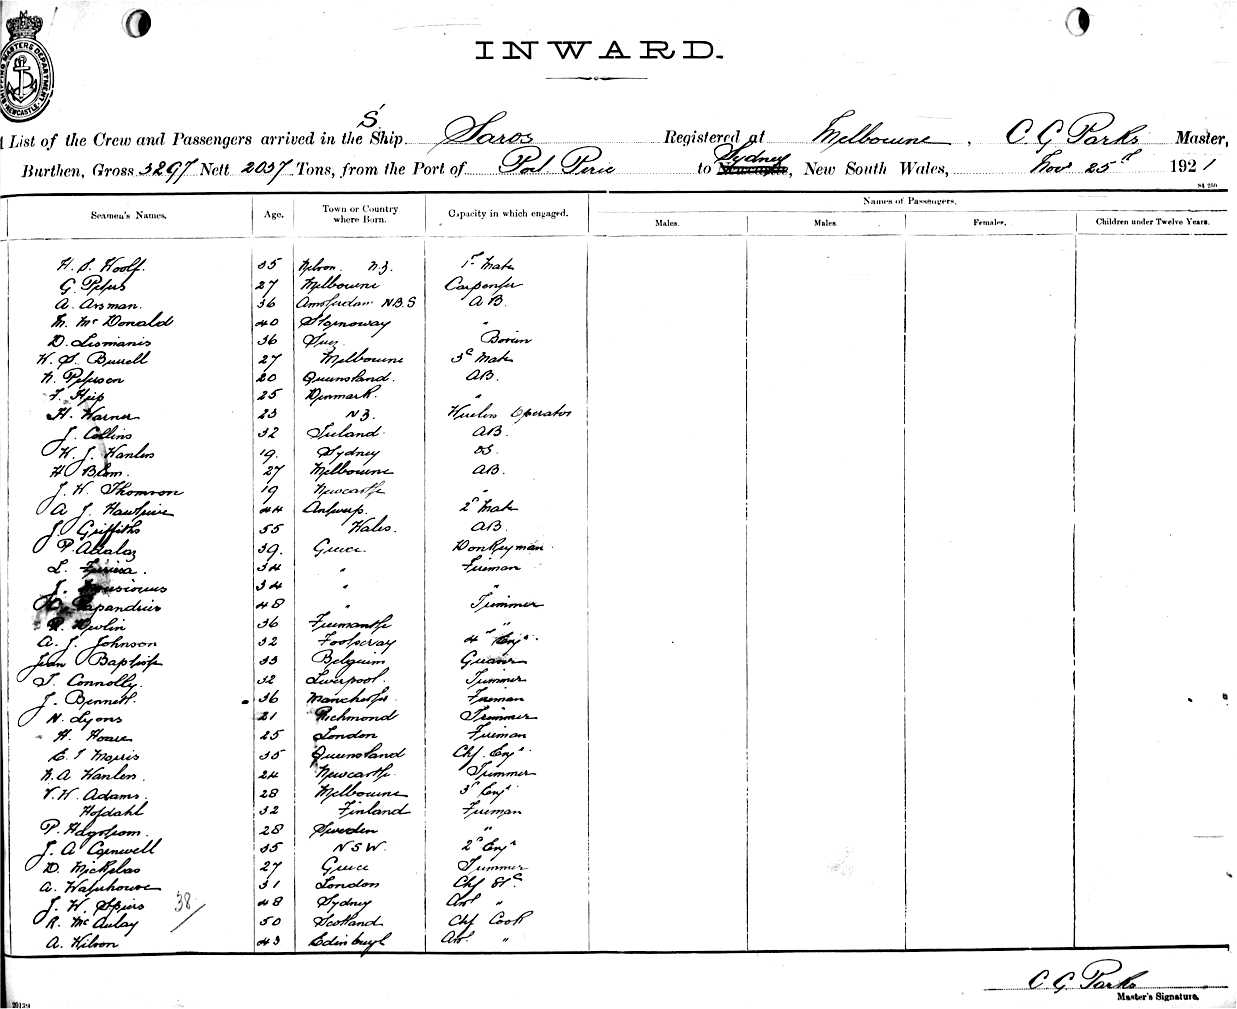 SHIPPING MASTERS DEPARTMENT NEWCASTLE
INWARD.
List of the Crew and Passengers arrived in the S. Ship Saros Registered at Melbourne, C. G. Parks Master,
Burthen, Gross 3297 Nett 2037 Tons, from the Port of Port Pirie to Sydney, New South Wales, Nov 25th 1921
84 250
Seamen's Names. Age. Town or Country where Born. Capacity in which engaged. Names of Passengers.
Males. Males. Females. Children under Twelve Years.
35 Nelson. N.Z. 1st Mate
G. Peters 27 Melbourne Carpenter
A. 36 Amsterdam AB
M. McDonald 40 Stornoway "
D. 36
W. S. Burrell 27 Melbourne 3rd Mate
N. Peterson 20 Queensland. AB.
25 Denmark. "
H. Warner 23 N.Z. Wireless Operator
J. Collins 32 Ireland. AB.
W. J. Hanlen 19. Sydney OS.
H. Blom. 27 Melbourne AB.
J. W. Thomson 19 Newcastle "
A. J. 44 Antwerp. 2nd Mate
J. Griffiths 55 Wales. AB.
P. 39. Greece. Donkeyman
L. 34 " Fireman
J. 34 " "
48 " Trimmer
36 Fremantle "
A. J. Johnson 32 Footscray 4th Eng.
Jean Baptiste 33 Belgium Greaser
T. Connolly. 32 Liverpool. Trimmer
J. Bennett. 36 Manchester Fireman
N. Lyons 21 Richmond Trimmer
H. Hoare 25 London Fireman
E. J. Morris 35 Queensland Chf. Eng.
N. A. Hanlen. 24 Newcastle Trimmer
V. H. Adams. 28 Melbourne 3rd Eng.
Hofdahl 32 Finland Fireman
P. Hagstrom. 28 Sweden "
J. A. Cornwell 35 N S W. 2nd Eng.
D. Mickelas 27 Greece Trimmer
A. Waterhouse 31 London Chf St.
J. W. Spiers 38 48 Sydney Ast "
R. McAulay 50 Scotland Chf Cook
A. Wilson 43 Edinburgh Ast. "
C. G. Parks
Master's Signature.